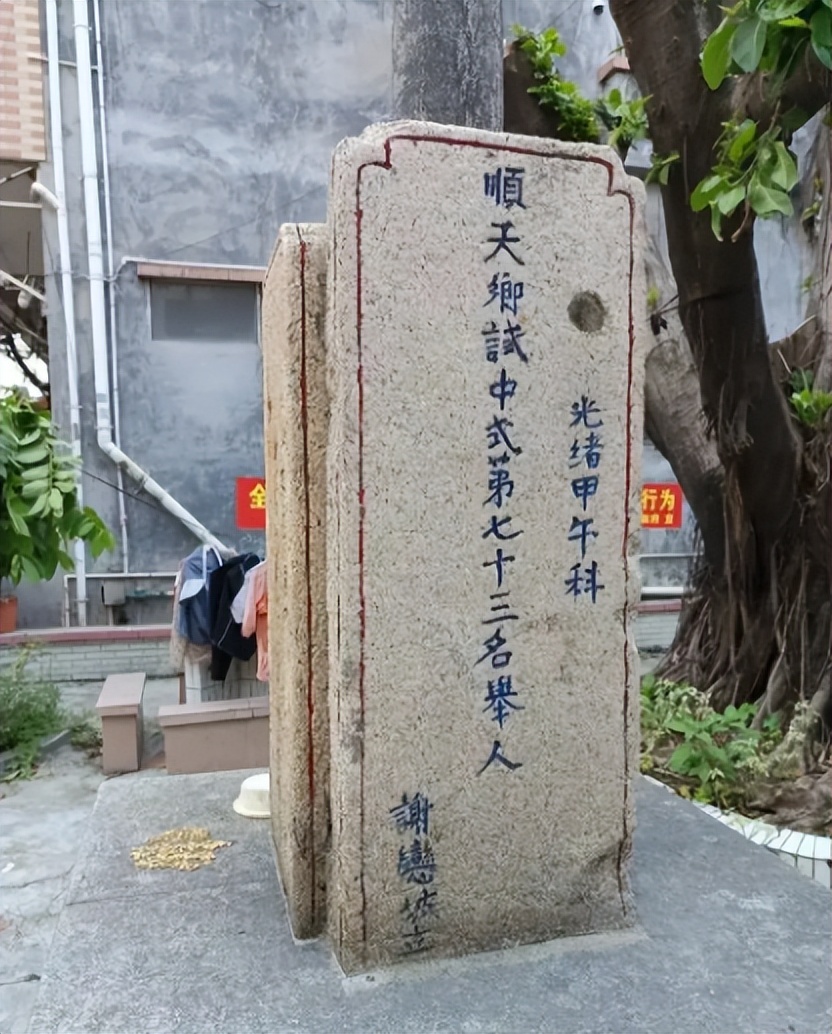 光绪甲午科
順天鄉試中式第七十三名舉人
謝戀坡立
全
行为